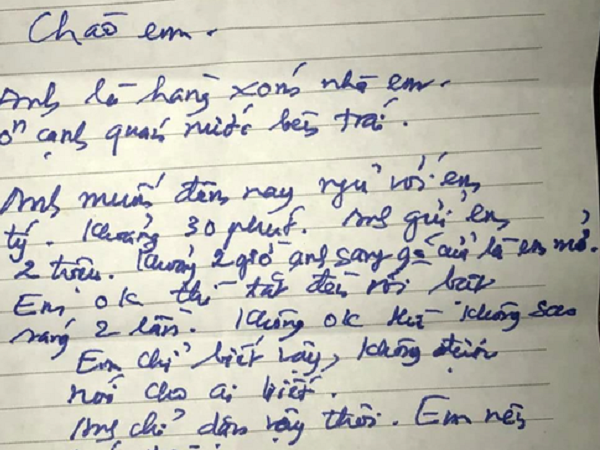 Chào em.
Anh là hàng xóm nhà em.
cạnh quán nước bên trái.
Anh muốn đêm nay ngủ với em
tý. Khoảng 30 phút. Anh gửi em
2 triệu. Khoảng 2 giờ anh sang gõ cửa là em mở.
Em ok thì tắt đèn rồi bật
sáng 2 lần. Không ok thì không sao
Em chỉ biết vậy, không được
nói cho ai biết.
Anh chỉ dặn vậy thôi. Em nên